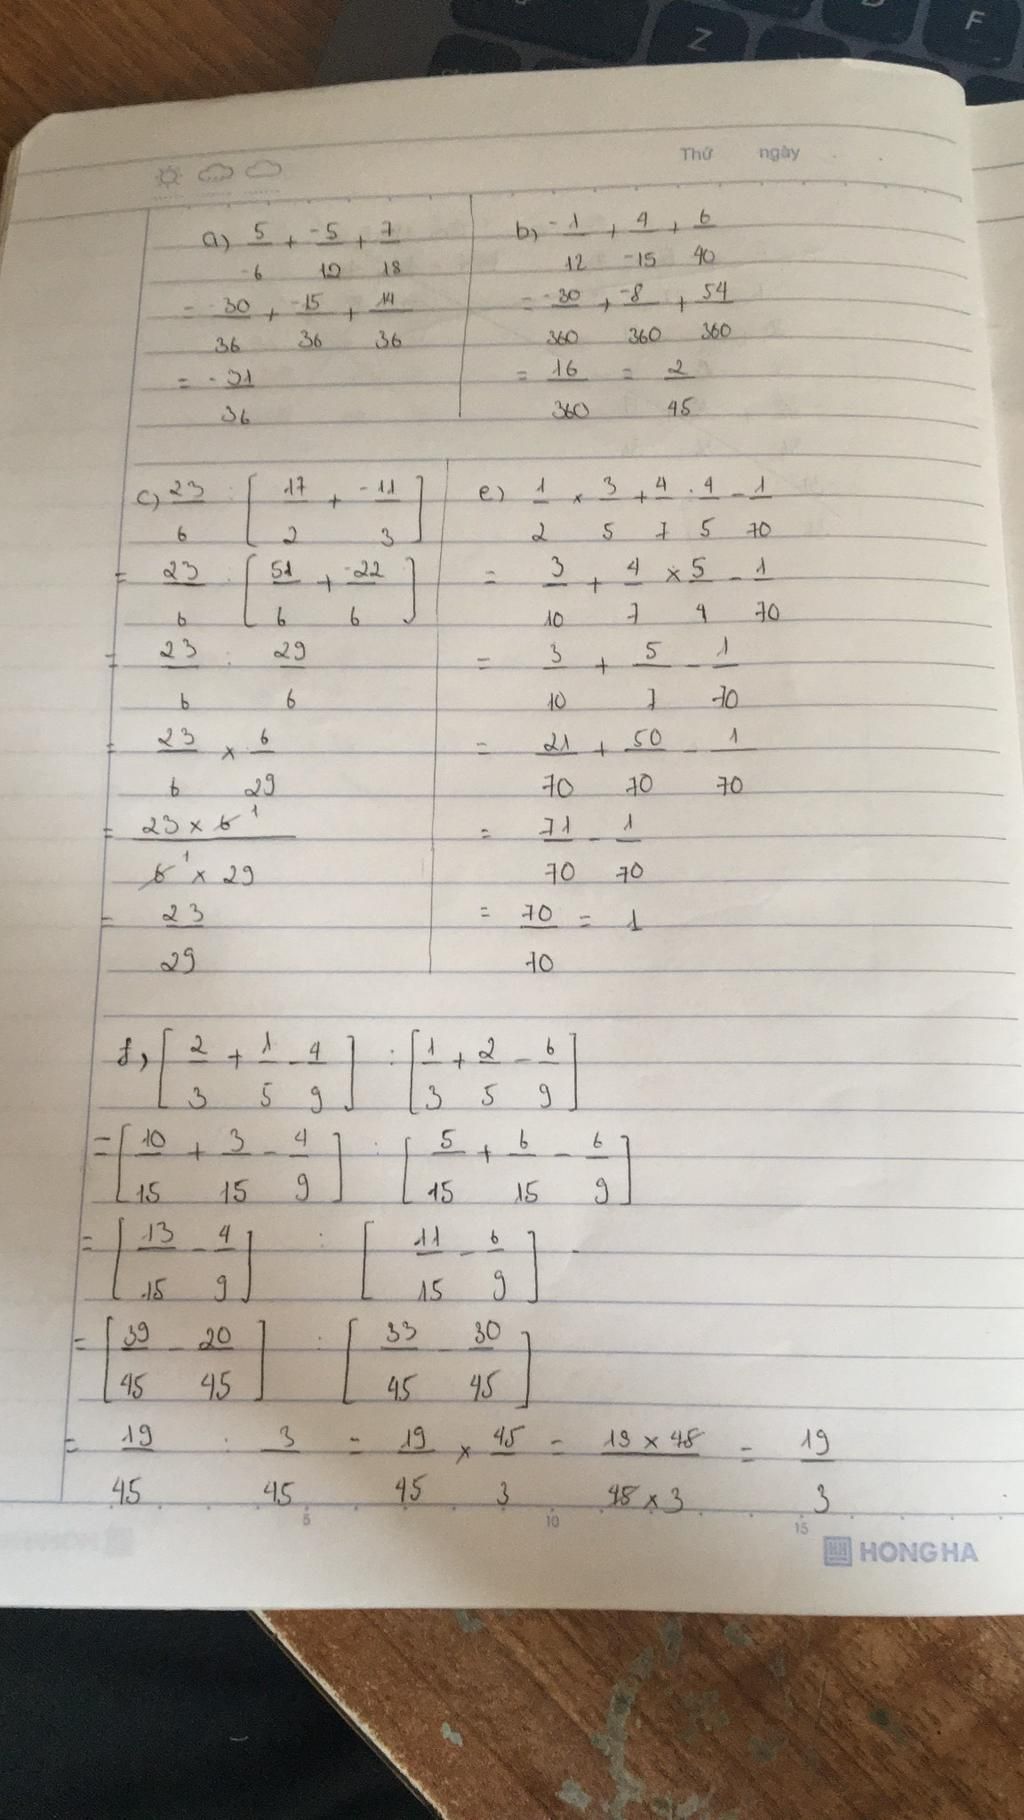 Z
F
Thứ ngày
a) 5/-6 + -5/12 + 7/18
= -30/36 + -15/36 + 14/36
= -31/36
b) -1/12 + 4/-15 + 6/40
= -30/360 + -8/360 + 54/360
= 16/360 = 2/45
c) 23/6 : [17/2 + -11/3]
= 23/6 : [51/6 + -22/6]
= 23/6 : 29/6
= 23/6 × 6/29
= 23 × 6 1 / 6 1 × 29
= 23/29
e) 1/2 × 3/5 + 4/7 : 4/5 - 1/70
= 3/10 + 4/7 × 5/4 - 1/70
= 3/10 + 5/7 - 1/70
= 21/70 + 50/70 - 1/70
= 71/70 - 1/70
= 70/70 = 1
f) [2/3 + 1/5 - 4/9] : [1/3 + 2/5 - 6/9]
= [10/15 + 3/15 - 4/9] : [5/15 + 6/15 - 6/9]
= [13/15 - 4/9] : [11/15 - 6/9]
= [39/45 - 20/45] : [33/45 - 30/45]
= 19/45 : 3/45 = 19/45 × 45/3 = 19 × 45 / 45 × 3 = 19/3
5 10 15
HONG HA